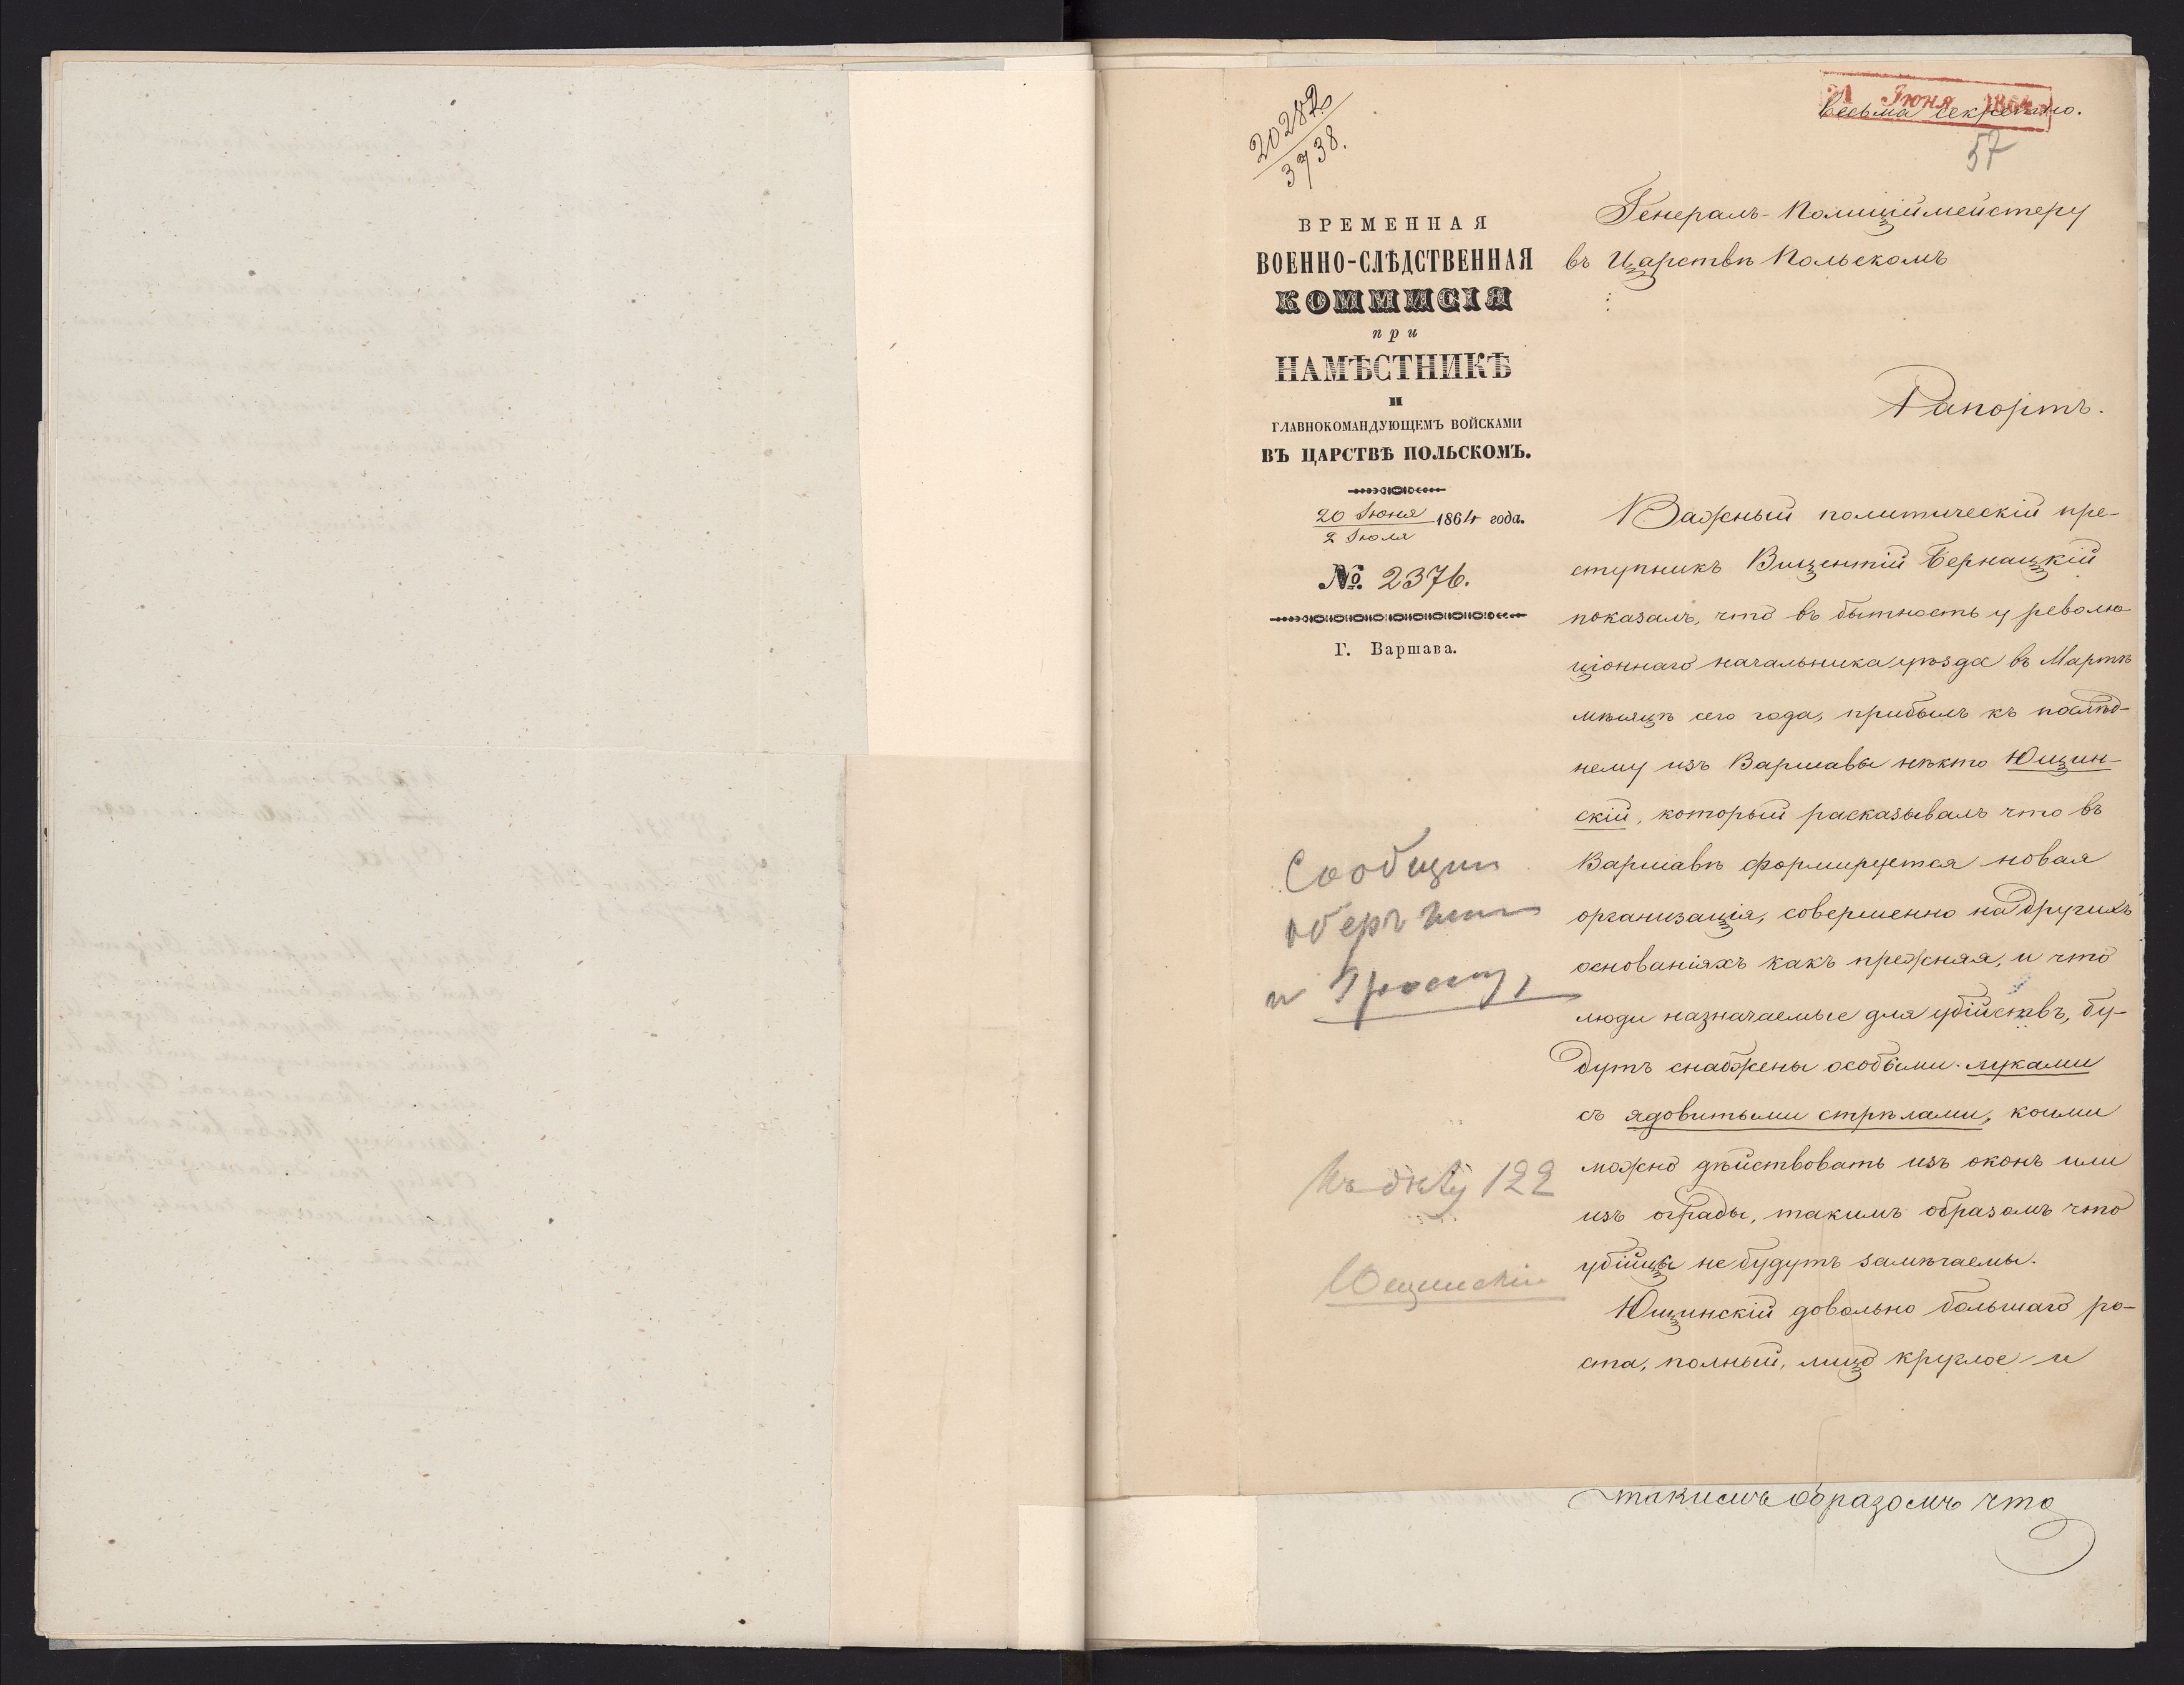 20282
3738.
21 Іюня 1864
Весьма секретно.
57
ВРЕМЕННАЯ
ВОЕННО-СЛѢДСТВЕННАЯ
КОММИСІЯ
при
НАМѢСТНИКѢ
и
ГЛАВНОКОМАНДУЮЩЕМЪ ВОЙСКАМИ
ВЪ ЦАРСТВѢ ПОЛЬСКОМЪ.
20 Іюня
2 Іюля
1864 года.
№ 2376.
Г. Варшава.
Сообщит
оберъ
и Гроссу,
Къ дѣлу 122
Ющинскій
Генералъ-Полиціймейстеру
въ Царствѣ Польскомъ
Рапортъ.
Важный политическій пре-
ступникъ Вицентій Бернацкій
показалъ, что въ бытность у револю-
ціоннаго начальника уѣзда въ Мартѣ
мѣсяцѣ сего года, прибылъ къ послѣд-
нему изъ Варшавы нѣкто Ющин-
скій, который расказывалъ что въ
Варшавѣ формируется новая
организація, совершенно на другихъ
основаніяхъ какъ прежняя, и что
люди назначаемые для убійствъ, бу-
дутъ снабжены особыми луками
съ ядовитыми стрѣлами, коими
можно дѣйствовать изъ оконъ или
изъ ограды, такимъ образомъ что
убійцы не будутъ замѣчаемы.
Ющинскій довольно большаго ро-
ста, полный, лицо круглое и
такимъ образомъ что